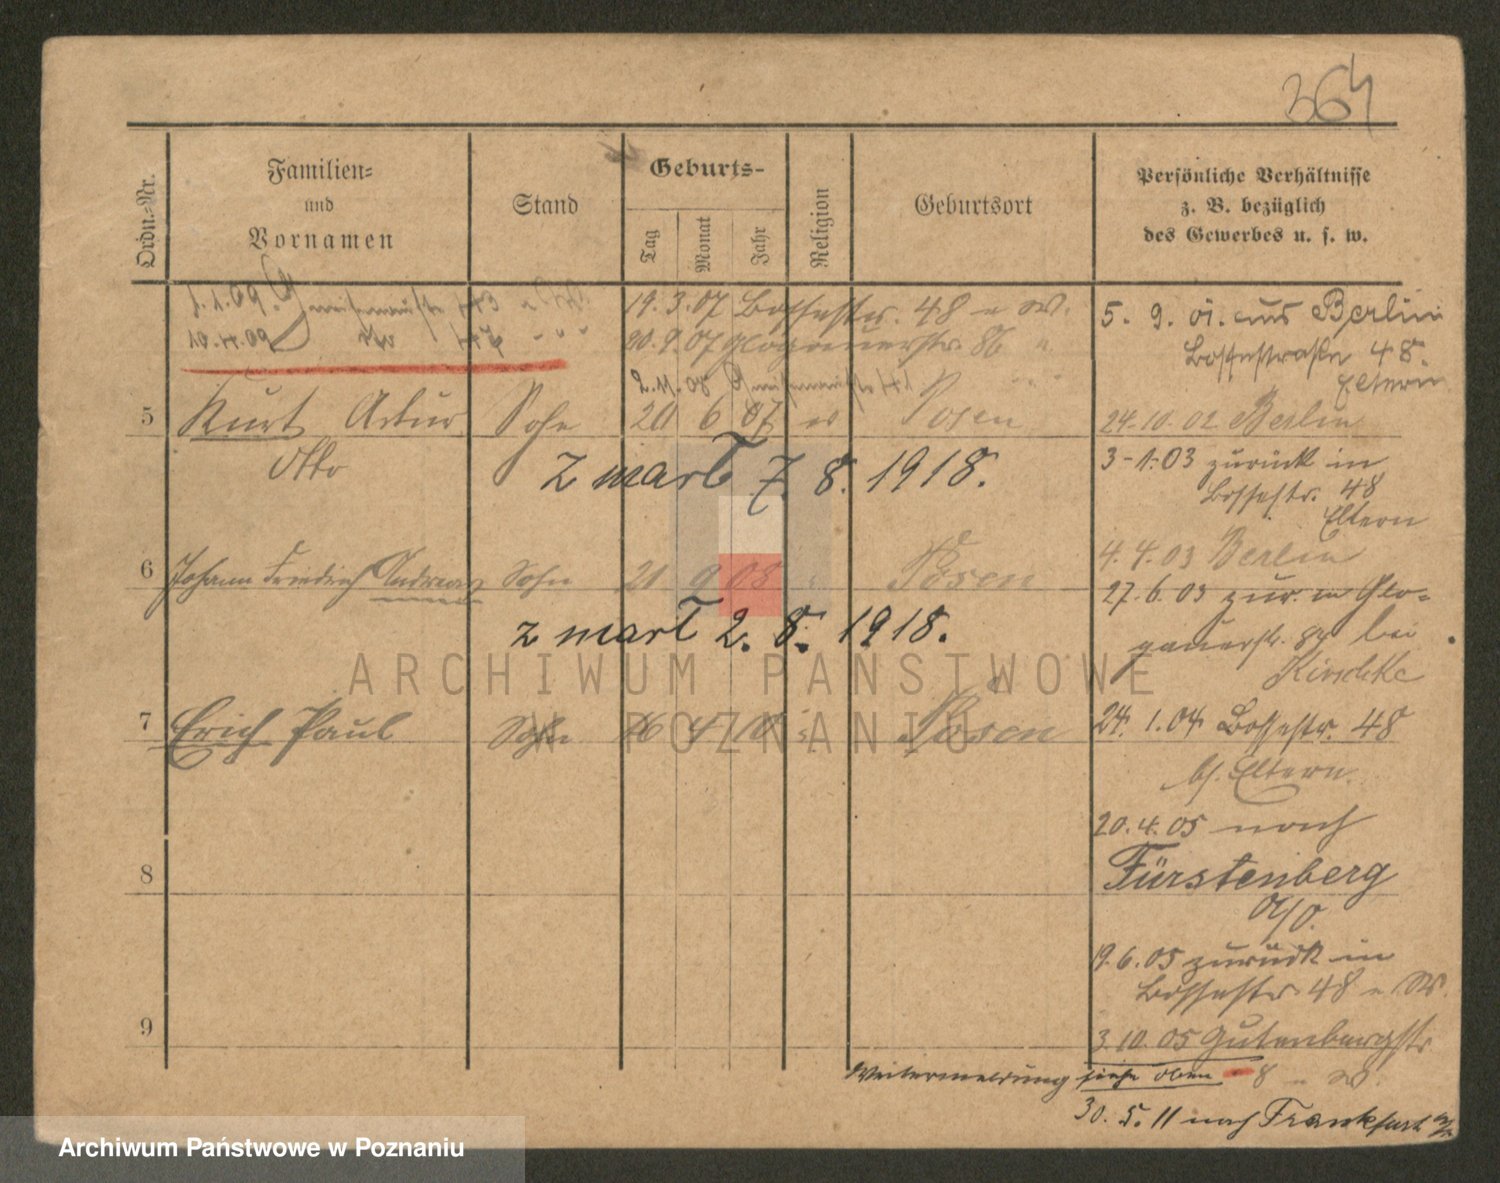 364
Ordn.=Nr.
Familien=
und
Vornamen
Stand
Geburts-
Tag
Monat
Jahr
Religion
Geburtsort
Persönliche Verhältnisse
z. B. bezüglich
des Gewerbes u. s. w.
19. 3. 07 Bossestr. 48 e W.
20. 9. 07 Glogauerstr. 86 "
5. 9. 01. aus Berlin
Bossestraße 48.
Eltern
5 Kurt Artur Sohn 20 6 07 Posen
Otto
24.10.02 Berlin
z mart 7. 8. 1918.
3-1.03 zurück in
Bossestr. 48
Eltern
4. 4. 03 Berlin
6 Johann Friedrich Andreas Sohn 21 9 08 Posen
27. 6. 03 zur. in Glo=
gauerstr. bei
z mart 2. 8. 1918.
7 Erich Paul Sohn 4 10 Posen
24. 1. 04 Bossestr. 48
b/. Eltern.
20. 4. 05 nach
Fürstenberg
a/O.
8
19. 6. 05 zurück in
Bossestr. 48 e W.
9
3. 10. 05 Gutenbergstr
Weitermeldung siehe oben 8 e W.
30. 5. 11 nach Frankfurt
ARCHIWUM PAŃSTWOWE
W POZNANIU
Archiwum Państwowe w Poznaniu